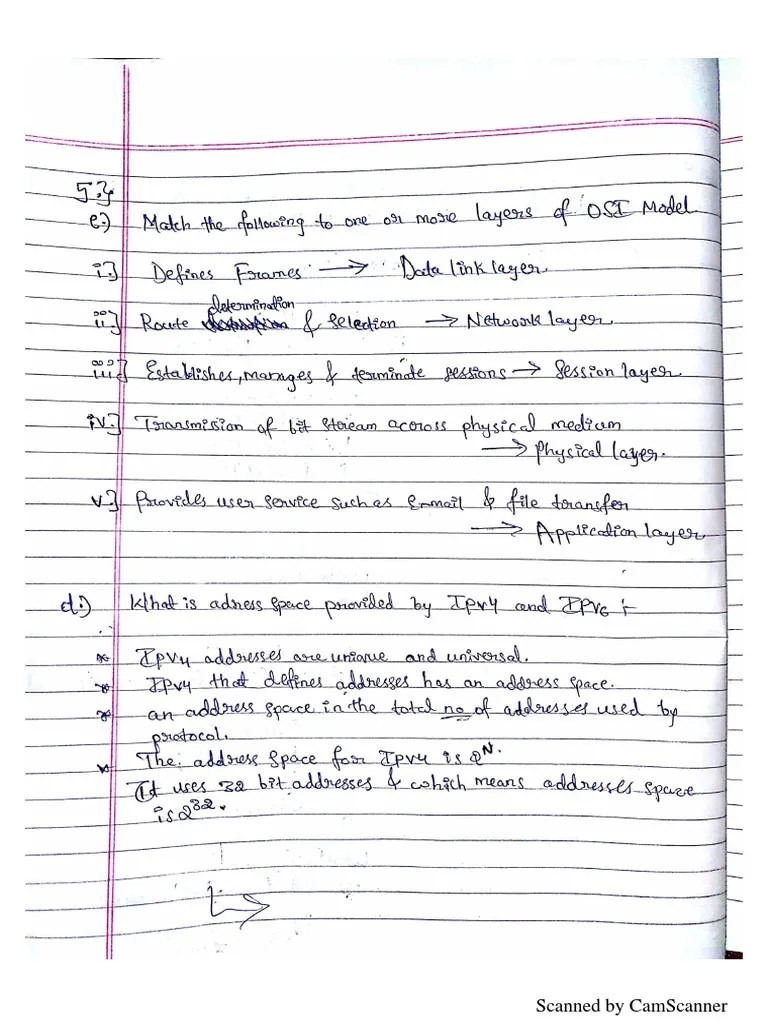 5.}
e.) Match the following to one or more layers of OSI Model
i.] Defines Frames → Data link layer.
determination
ii.] Route & selection → Network layer.
iii.] Establishes, manages & terminate sessions → Session layer.
iv.] Transmission of bit stream across physical medium
→ Physical layer.
v.] Provides user service such as E-mail & file transfer
→ Application layer
d.) What is adress space provided by IPv4 and IPv6 :-
* IPv4 addresses are unique and universal.
* IPv4 that defines addresses has an address space.
* an address space in the total no of addresses used by
protocol.
* The address space for IPv4 is 2^N.
It uses 32 bit addresses & which means addresses space
is 2^32.
Scanned by CamScanner